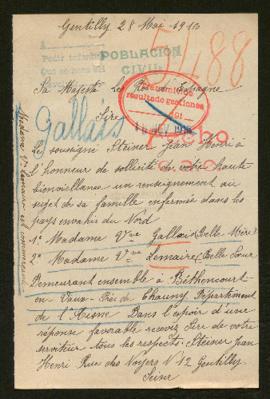 Gentilly, 28 Mai 191
5488
POBLACION
CIVIL
Sa Majesté le Roi d'Espagne
Sire
resultado gestiones
Gallais
Le soussigné Steiner Jean Henri a
l'honneur de sollicité de votre haute
bienveillance un renseignement au
sujet de sa famille enfermée dans les
pays envahi du Nord
1° Madame Vve Gallais (Belle Mère)
2° Madame Vve Lemaire (Belle Soeur
Demeurant ensemble à Béthencourt
en Vaux Près de Chauny Département
de l'Aisne Dans l'espoir d'une
réponse favorable recevez Sire de votre
serviteur tous les respects. Steiner Jean
Henri Rue des Noyers N° 12 Gentilly
Seine